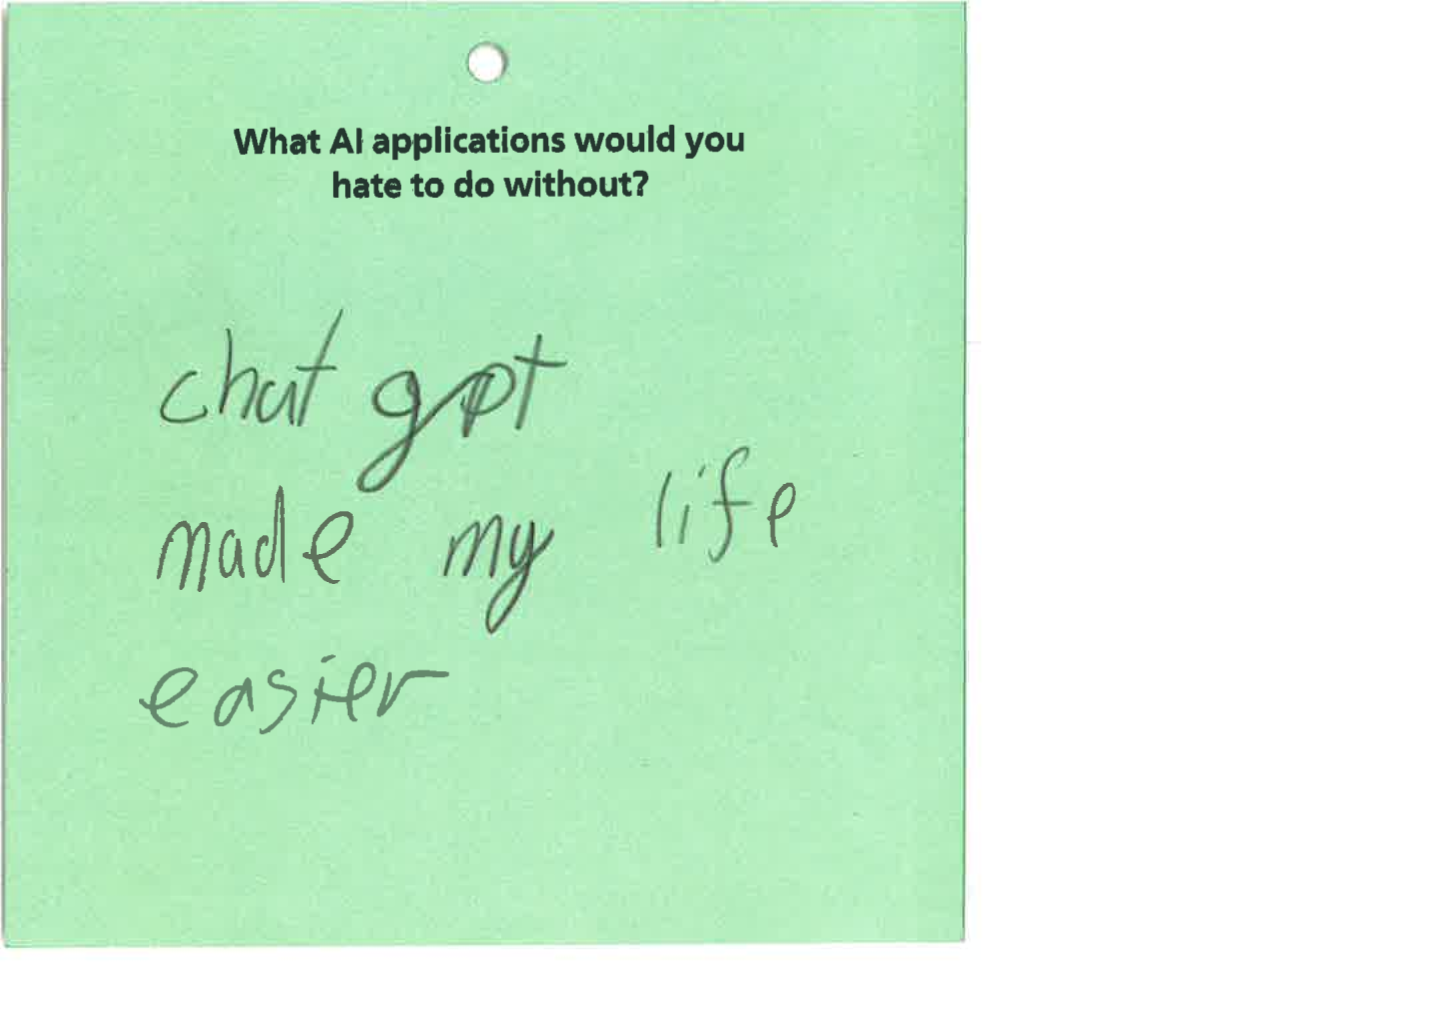 What AI applications would you
hate to do without?
chat gpt
made my life
easier